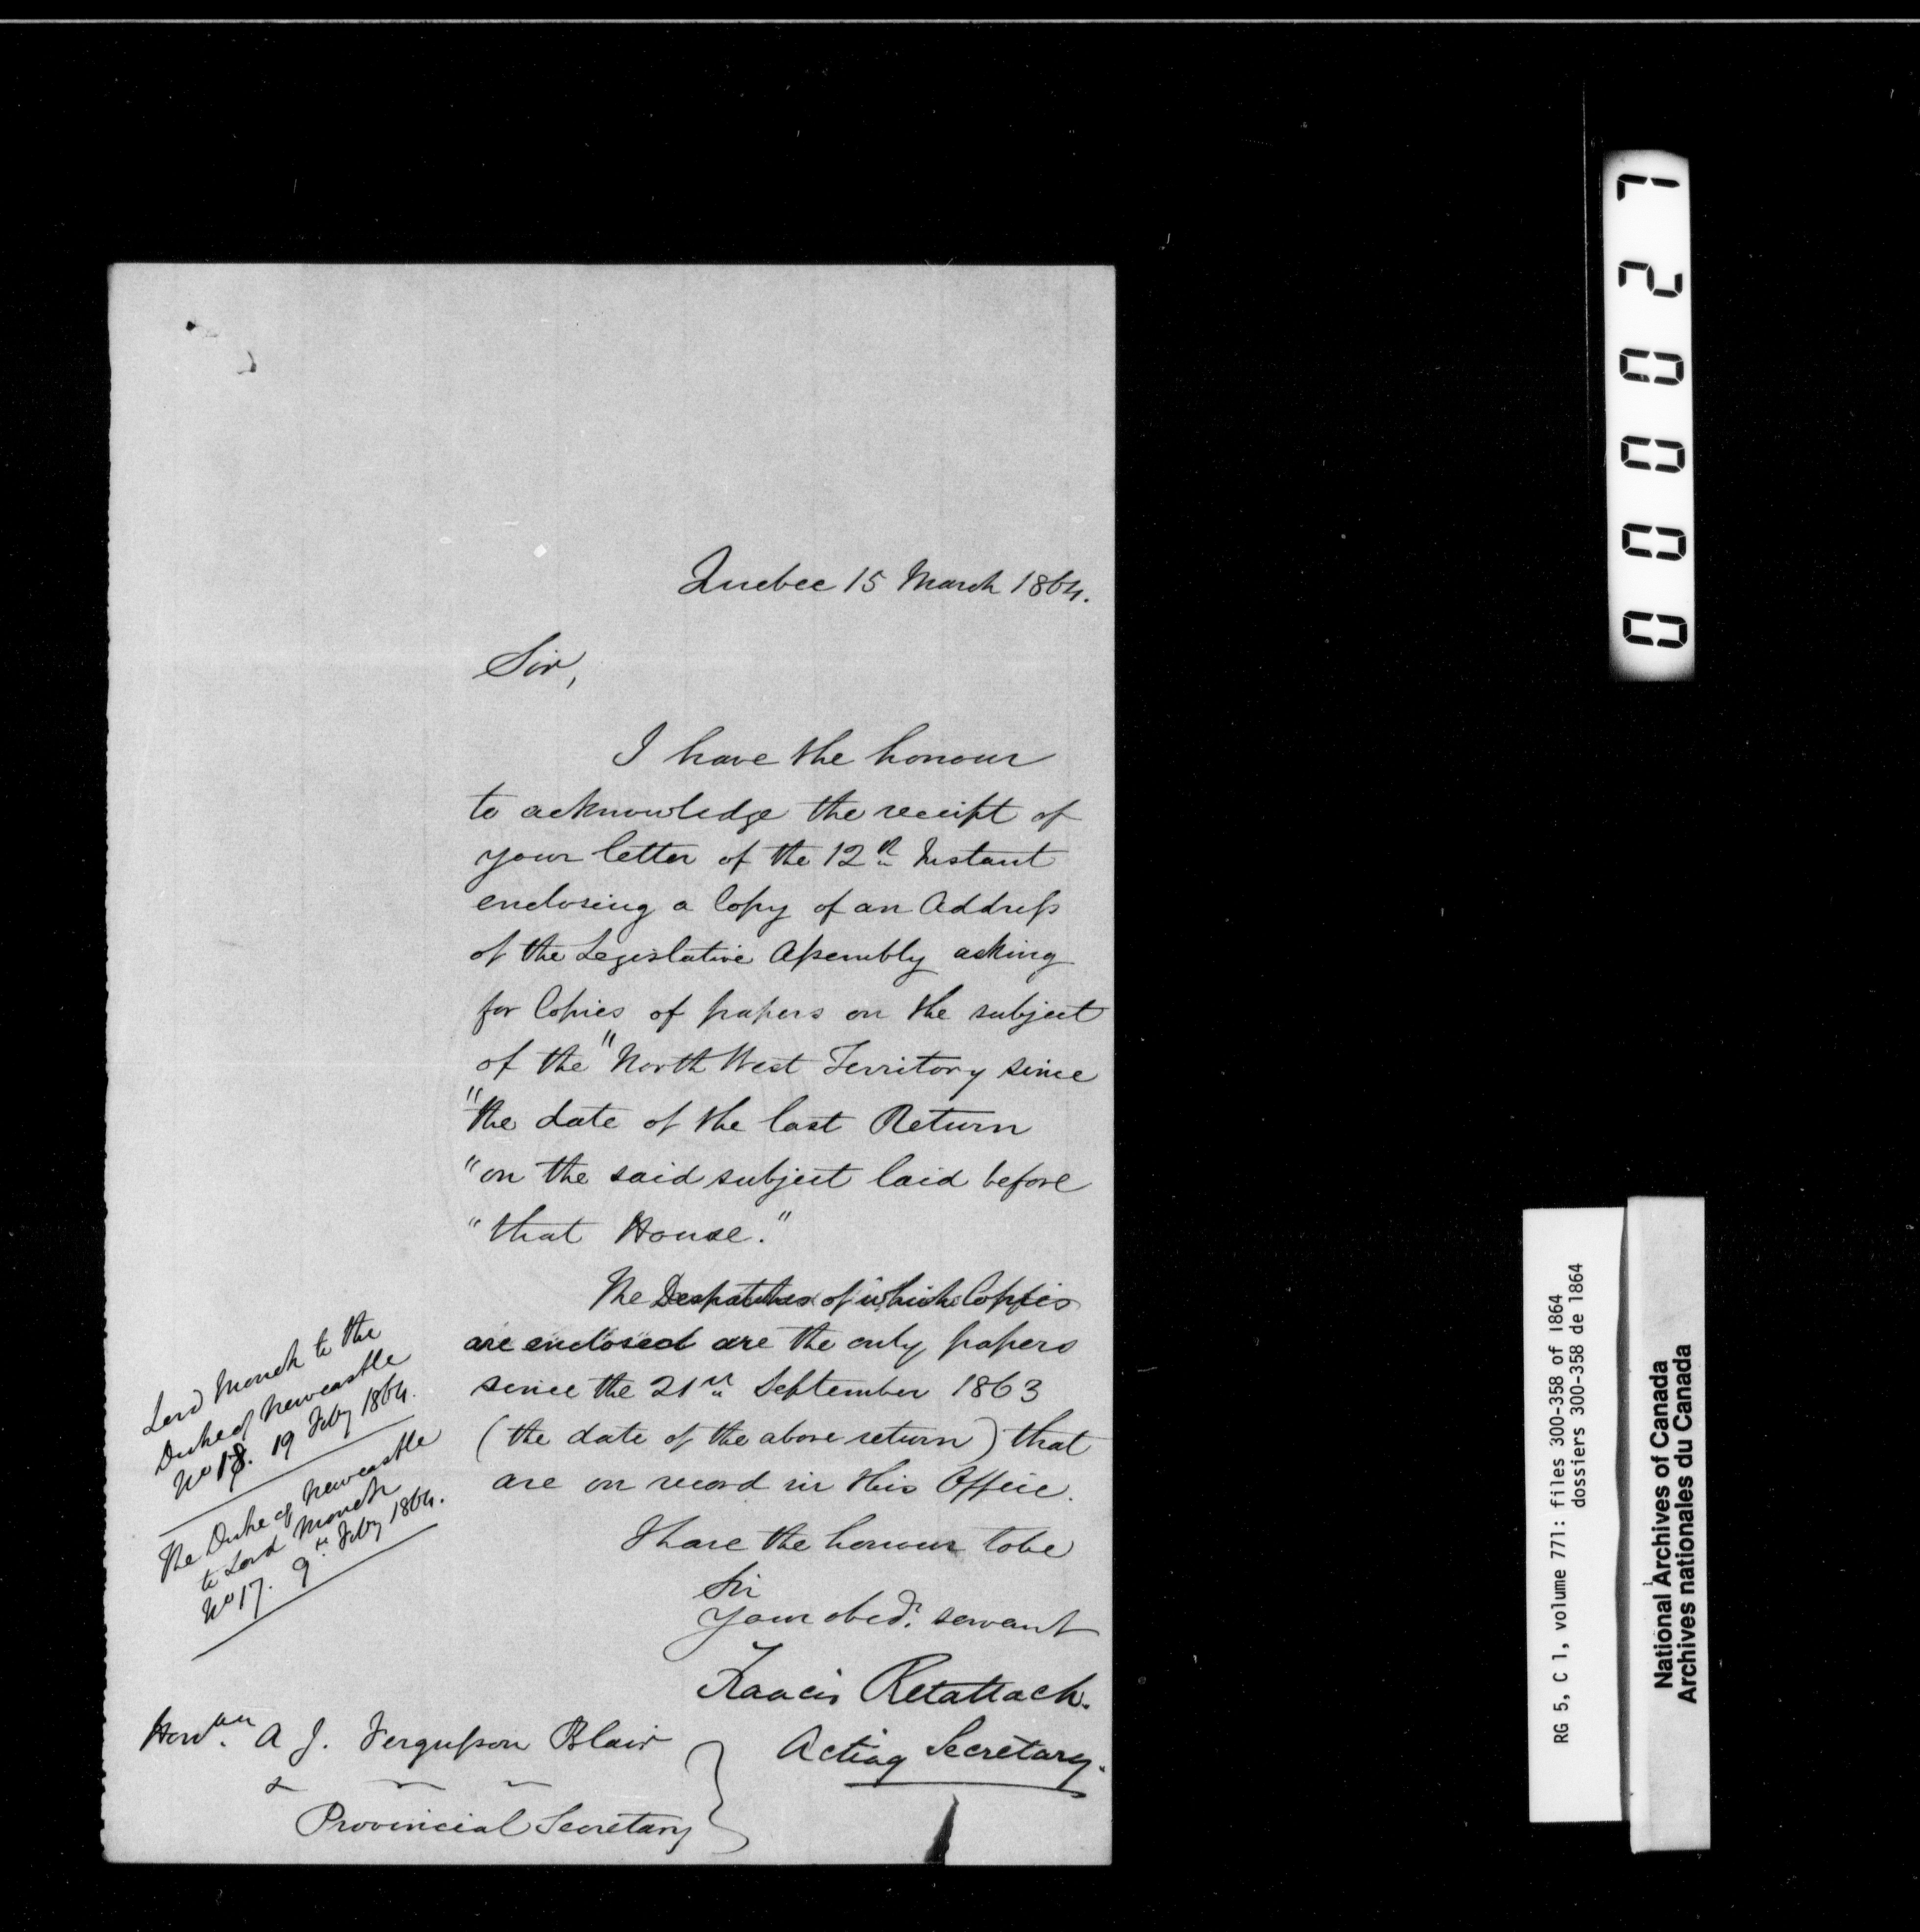 Quebec 15 March 1864.
Sir,
I have the honour
to acknowledge the receipt of
your letter of the 12th Instant
enclosing a Copy of an Address
of the Legislative Assembly asking
for Copies of papers on the subject
of the "North West Territory since
"the date of the last Return
"on the said subject laid before
"that House."
The Despatches of which Copies
are enclosed are the only papers
since the 21st September 1863
(the date of the above return) that
are on record in this Office.
I have the honour to be
Sir
Your obedt. servant
Francis Retallack.
Acting Secretary.
Lord Monck to the
Duke of Newcastle
No 18. 19 Feby 1864.
The Duke of Newcastle
to Lord Monck
No 17. 9th Feby 1864.
Honble. A J. Fergusson Blair
&
Provincial Secretary
000027
RG 5, C 1, volume 771: files 300-358 of 1864
dossiers 300-358 de 1864
National Archives of Canada
Archives nationales du Canada